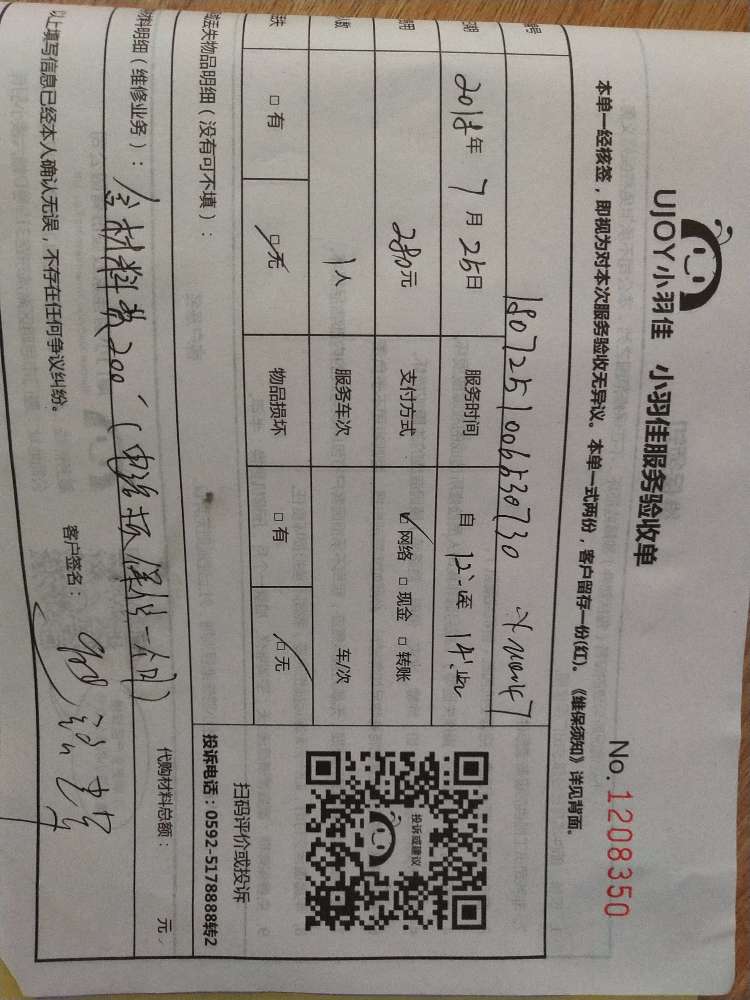 UJOY小羽佳 小羽佳服务验收单
No. 1208350
本单一经核签，即视为对本次服务验收无异议。本单一式两份，客户留存一份(红)。《维保须知》详见背面。
号
期 2018年7月25日 服务时间 自
用 280元 支付方式 ☑网络 □现金 □转账
数 1人 服务车次 车/次
失 □有 ☑无 物品损坏 □有 ☑无
投诉或建议
扫码评价或投诉
投诉电话：0592-5178888转2
丢失物品明细（没有可不填）：
材料明细（维修业务）：含材料费200
代购材料总额： 元
以上填写信息已经本人确认无误，不存在任何争议纠纷。 客户签名：